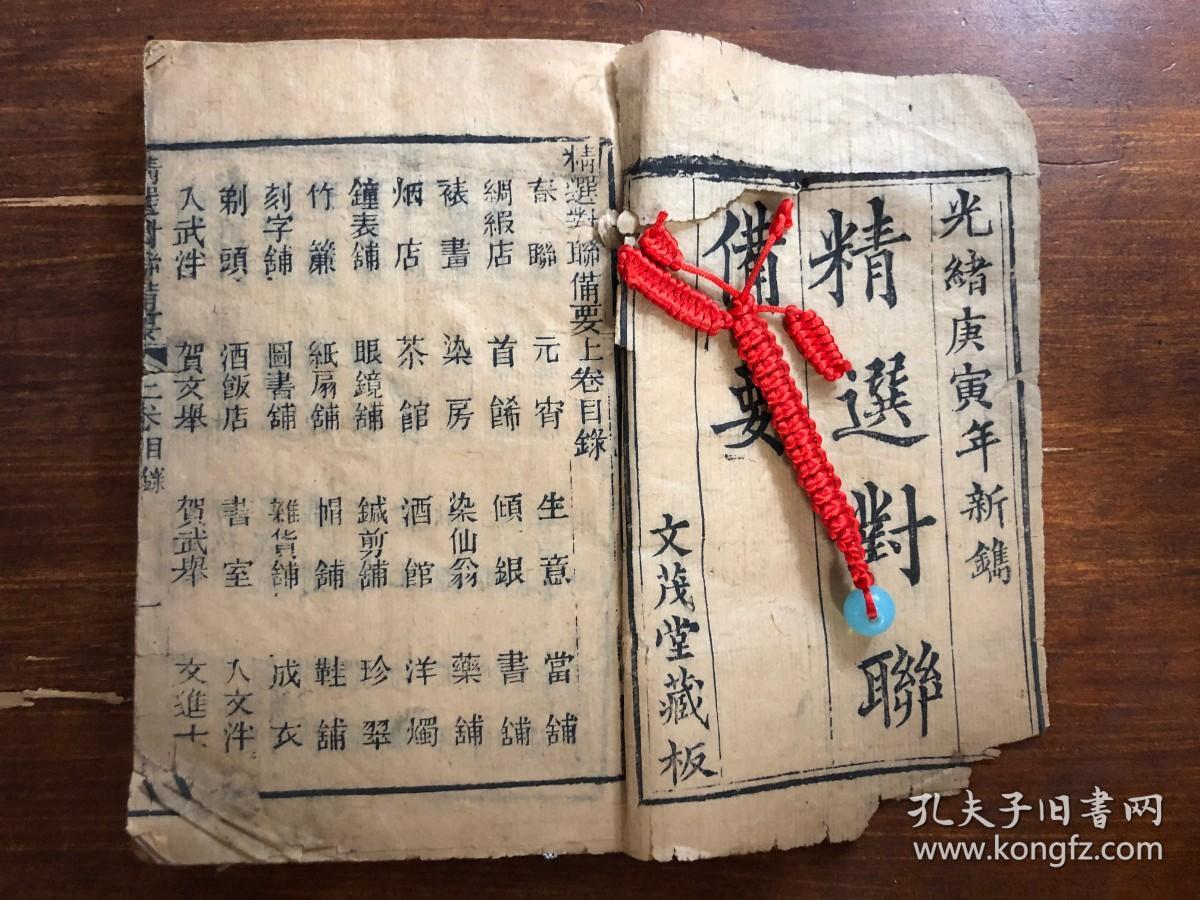 光緒庚寅年新鐫
精選對聯
備要
文茂堂藏板
精選對聯備要上卷目錄
春聯 元宵 生意 當舖
綢緞店 首餙 傾銀 書舖
裱畫 染房 染仙翁 藥舖
烟店 茶館 酒館 洋燭
鐘表舖 眼鏡舖 鍼剪舖 珍翠
竹簾 紙扇舖 帽舖 鞋舖
刻字舖 圖書舖 雜貨舖 成衣
剃頭 酒飯店 書室 入文泮
入武泮 賀文舉 賀武舉 文進士
精選對聯備要 上卷目錄 一
孔夫子旧书网
www.kongfz.com